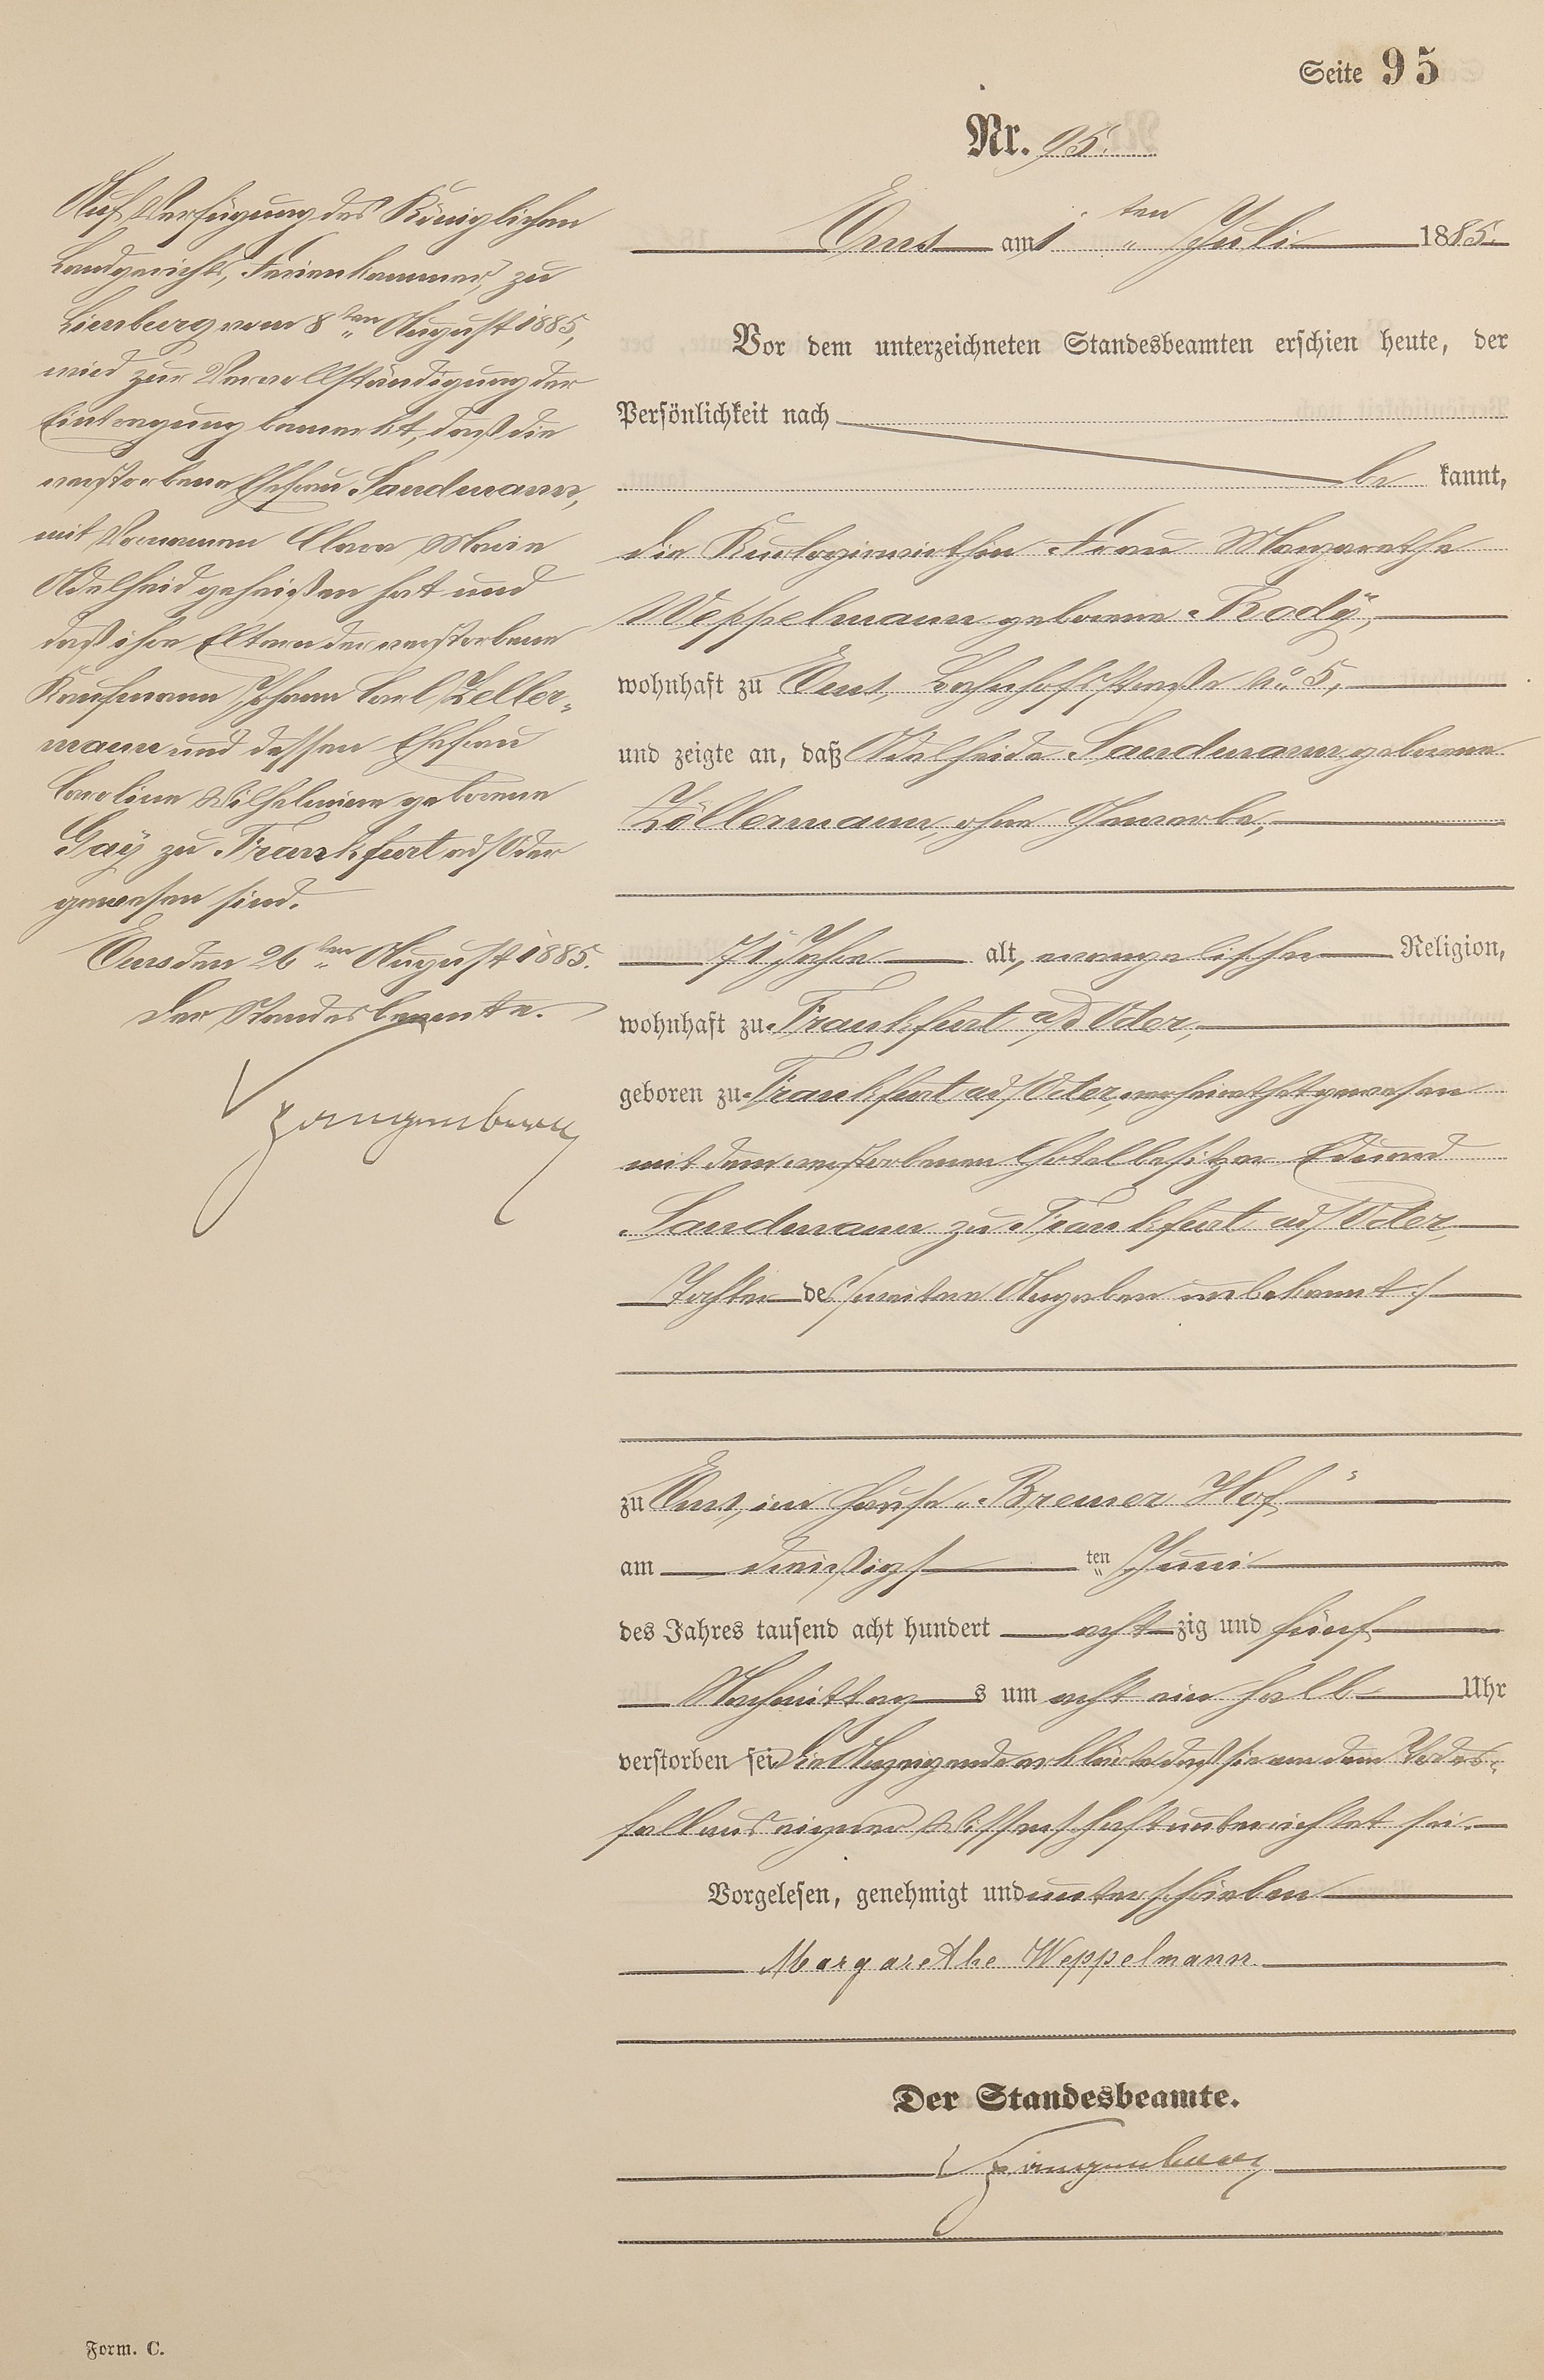 Seite 95
Nr. 95.
Ems am 1 ten Juli 1885.
Vor dem unterzeichneten Standesbeamten erschien heute, der
Persönlichkeit nach
be kannt,
die Kurlogirwirthin Frau Margarethe
Weppelmann geborene Rody,
wohnhaft zu Ems, Bahnhofstraße No 5,
und zeigte an, daß Adelheide Sandmann geborene
Zöllermann, ohne Gewerbe,
71 Jahre alt, evangelischer Religion,
wohnhaft zu Frankfurt a/d Oder,
geboren zu Frankfurt ad/Oder, verheirathet gewesen
mit dem verstorbenen Hotelbesitzer Eduard
Sandmann zu Frankfurt ad/Oder,
Tochter des /: weitere Angaben unbekannt :/
zu Ems, im Hause „Bremer Hof"
am dreißigsten Juni
des Jahres tausend acht hundert achtzig und fünf
Nachmittags um acht ein halb Uhr
verstorben sei. Die Anzeigende erklärte daß sie von dem Todes-
fall aus eigener Wissenschaft unterrichtet sei.
Vorgelesen, genehmigt und unterschrieben
Margarethe Weppelmann
Der Standesbeamte.
Auf Verfügung des Königlichen
Landgerichts, Ferienkammer, zu
Limburg vom 8ten August 1885,
wird zur Vervollständigung der
Eintragung bemerkt, daß die
verstorbene Ehefrau Sandmann,
mit Vornamen Clara Marie
Adelheid geheißen hat und
daß ihre Eltern der verstorbene
Kaufmann Johann Carl Zeller-
mann und dessen Ehefrau
Caroline Wilhelmine geborene
Gay zu Frankfurt ad/Oder
gewesen sind.
Ems den 26ten August 1885.
Der Standesbeamte.
Form. C.